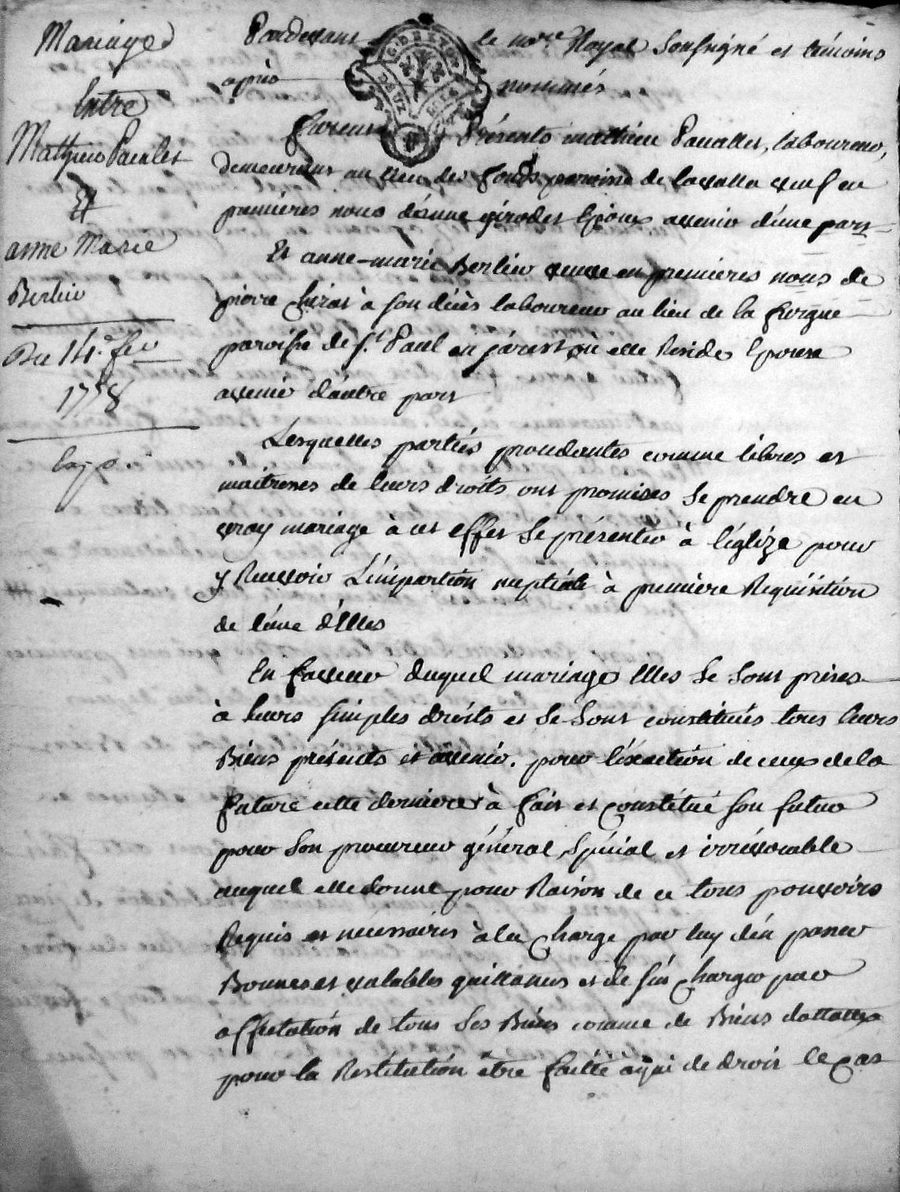 Mariage
Entre
Mathieu Paculet
Et
anne Marie
Berlier
Du 14e fev
1758
Pardevant le nore Royal Soussigné et témoins
après nommés
Furent Présents mathieu laboureur,
demeurant au lieu de paroisse de lavalla veuf en
premières noces d'anne girodet Epoux avenir d'une part
Et anne-marie Berlier veuve en premières noces de
pierre à son décès laboureur au lieu de la
paroisse de st Paul en jarest où elle Réside Epouse
avenir d'autre part
Lesquelles parties procédantes comme libres et
maitresses de leurs droits ont promises se prendre en
vray mariage à cet effet se présenter à l'églize pour
y Recevoir L'inpartion nuptiale à première Requisition
de l'une d'Elles
En faveur duquel mariage Elles se sont prises
à leurs simples droits et se sont constitués tous leurs
Biens présents et avenir. pour l'éxaction de ceux de la
future cette dernière à fait et constitué son futur
pour son procureur général, spécial et irrévocable
auquel elle donne pour Raison de ce tous pouvoirs
Requis et nécessaires à la charge par luy d'en passer
Bonnes et valables quittances et de s'en charger par
affectation de tous ses Biens comme de Biens dottaux
pour la Restitution être faitte à qui de droit le cas